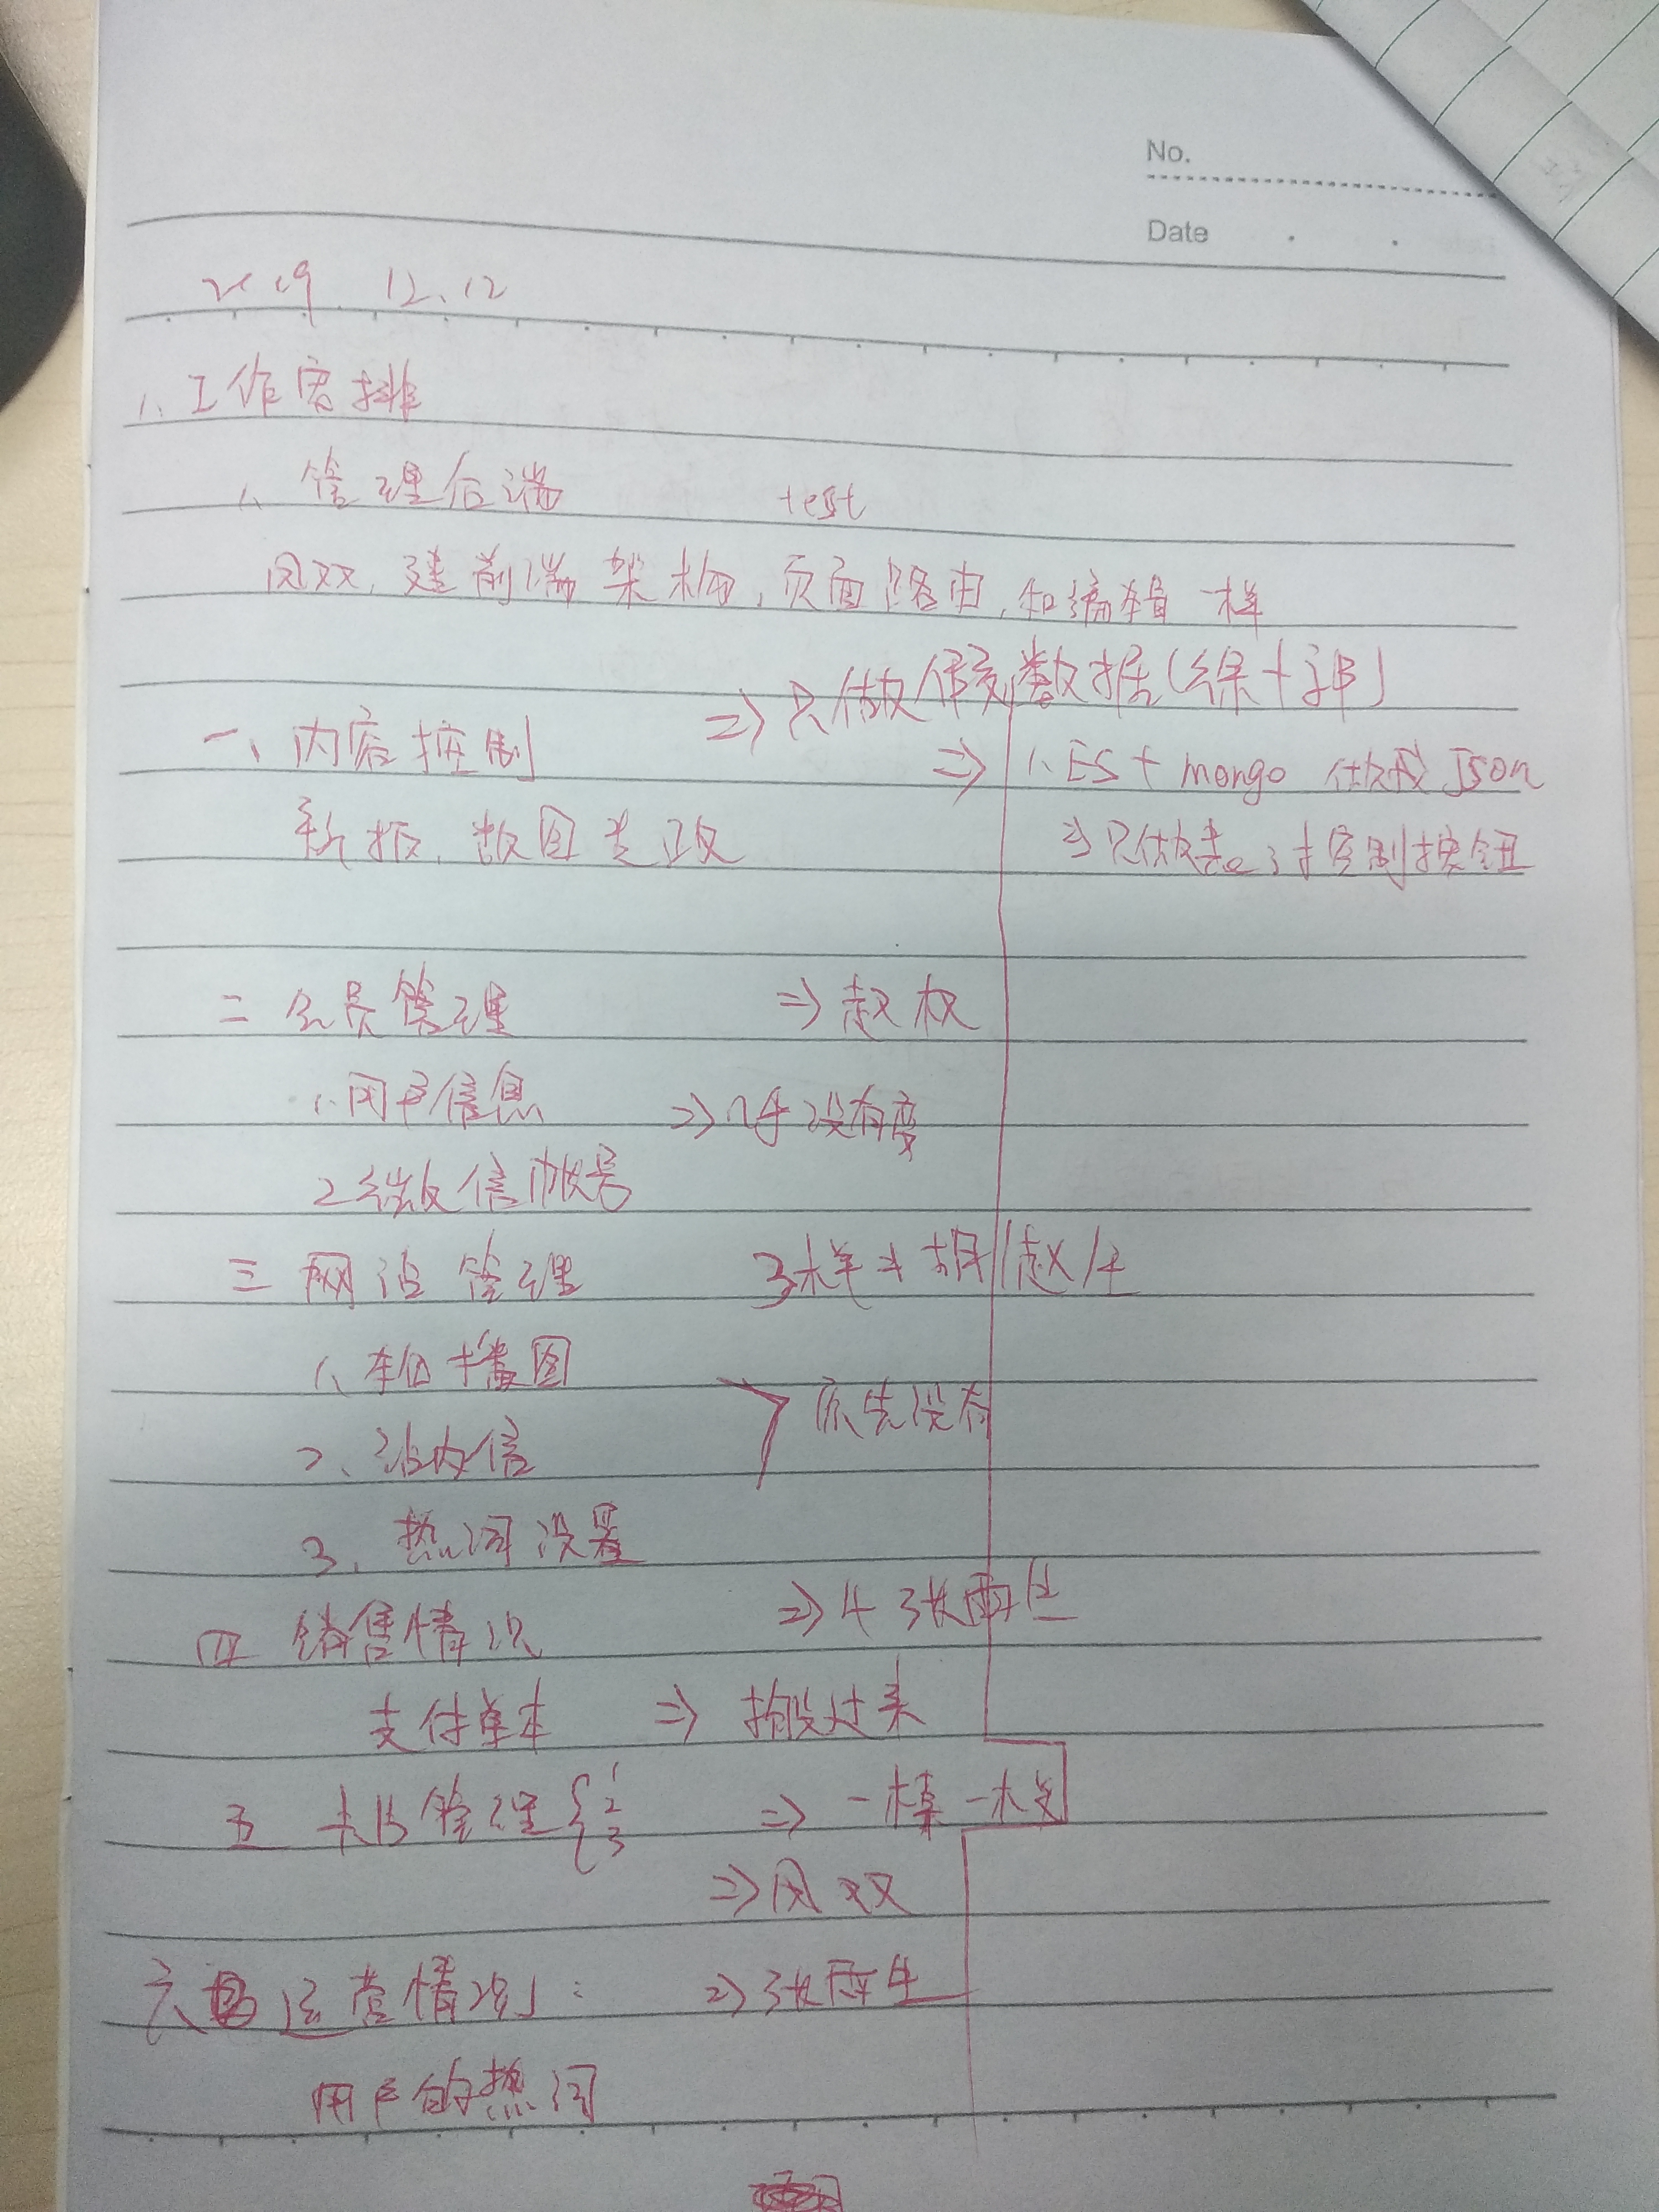 No.
Date
2019. 12.12
1、工作安排
1、管理后端 test
凤双,建前端架构,页面路由,和编辑一样
⇒只做假数据(徐+郭)
一、内容控制
⇒ 1、ES + mongo 做成Json
新报,数图
⇒只做 控制按钮
二 会员管理 ⇒ 赵权
1.用户信息 ⇒ 没有变
2微信帐号
三 网站管理 胡 赵
1、轮播图
原先没有
2、站内信
3、热词设置
四 销售情况 ⇒ 张雨生
支付 ⇒ 搬过来
五 管理 { 1 2 3 ⇒ 一模一样
⇒凤双
六 运营情况: ⇒张雨生
用户的热词